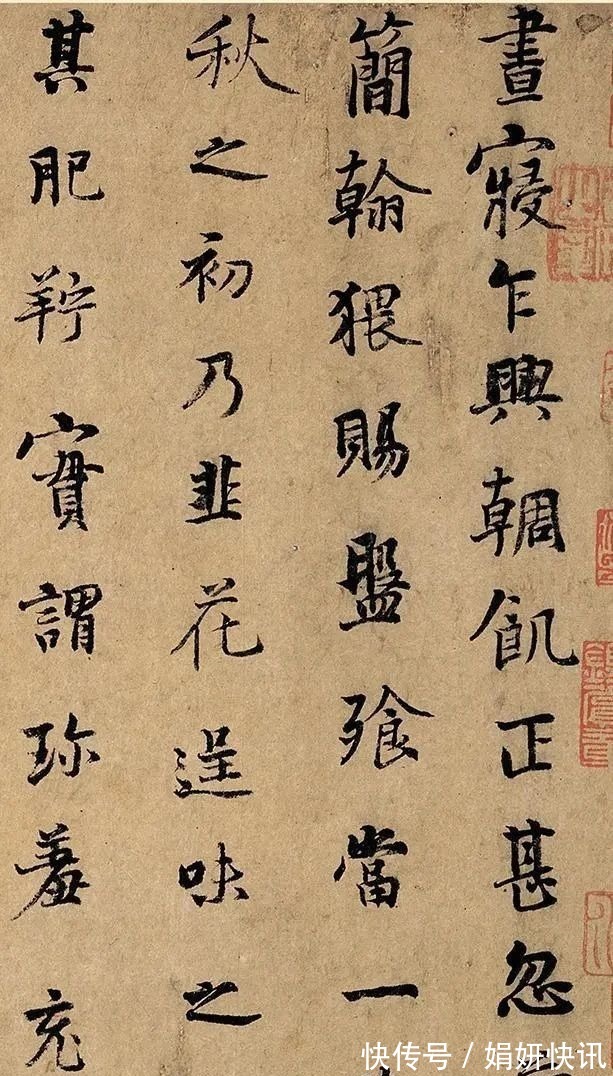 晝寢乍興輖飢正甚忽
簡翰猥賜盤飱當一
秋之初乃韭花逞味之
其肥羜實謂珎羞充
快传号 / 娟妍快讯